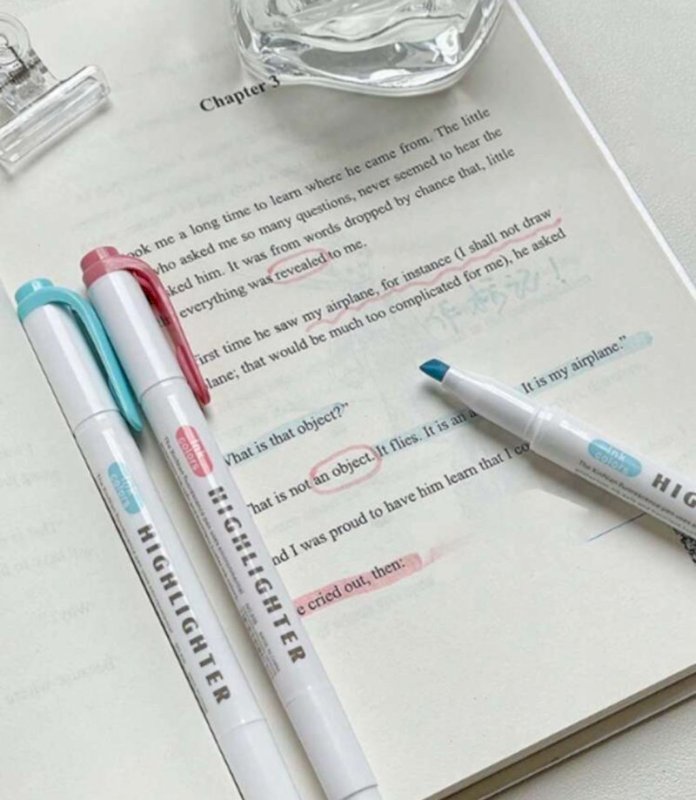 Chapter 3
ook me a long time to learn where he came from. The little
who asked me so many questions, never seemed to hear the
ked him. It was from words dropped by chance that, little
everything was revealed to me.
irst time he saw my airplane, for instance (I shall not draw
lane; that would be much too complicated for me), he asked
What is that object?"
hat is not an object. It flies. It is an a It is my airplane."
nd I was proud to have him learn that I co
e cried out, then:
ink
colors
HIGHLIGHTER
ink
colors
HIGHLIGHTER
ink
colors
HIG